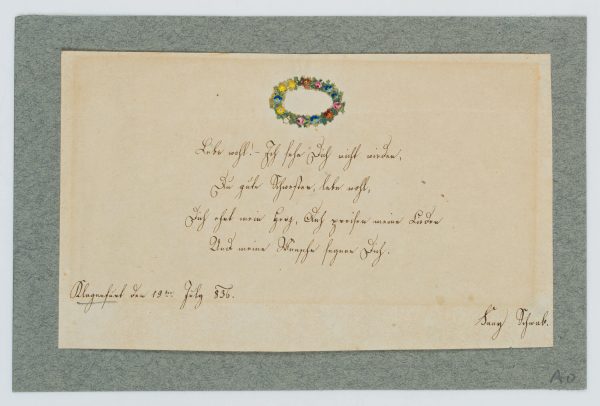 Lebe wohl! - Ich sehe Dich nicht wieder,
Du gute Schwester, lebe wohl,
Dich ehrt mein Herz, Dich preisen meine Lieder
Und meine Wünsche segnen Dich.
Klagenfurt den 19ten July 836.
Fany Schwab.
AO